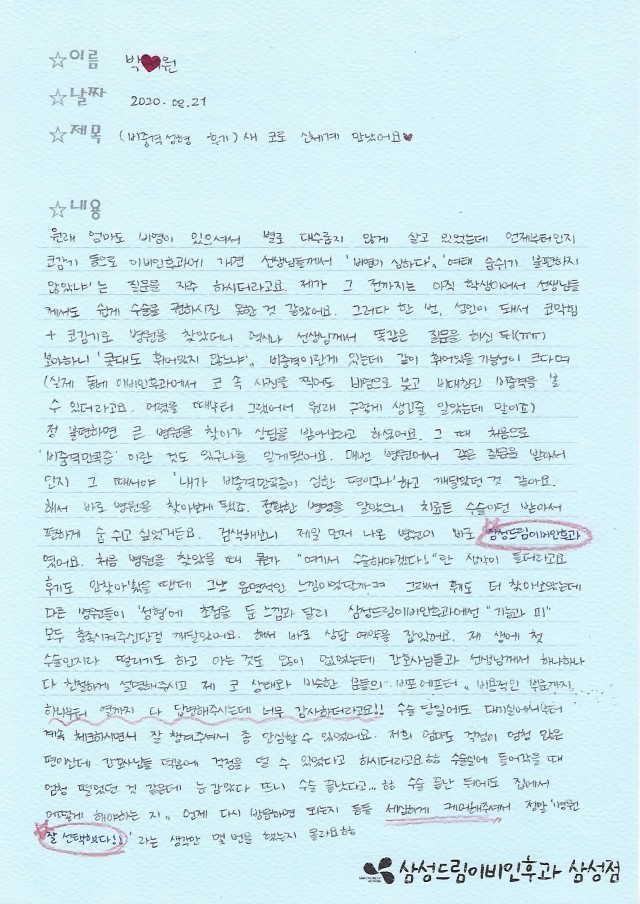 ☆이름 박♥원
☆날짜 2020.02.21
☆제목 (비중격성형 후기) 새 코로 신세계 만났어요♥
☆내용
원래 엄마도 비염이 있으셔서 별로 대수롭지 않게 살고 있었는데 언제부터인지
코감기 등으로 이비인후과에 가면 선생님들께서 '비염이 심하다', '여태 숨쉬기 불편하지
않았냐'는 질문을 자주 하시더라고요. 제가 그 전까지는 아직 학생이어서 선생님들
께서도 쉽게 수술을 권하시진 못한 것 같았어요. 그러다 한 번, 성인이 돼서 코막힘
+ 코감기로 병원을 찾았더니 역시나 선생님께서 똑같은 질문을 하신 뒤(ㅠㅠ)
보아하니 '콧대도 휘어있지 않느냐', 비중격이란게 있는데 같이 휘어있을 가능성이 크다며
(실제 동네 이비인후과에서 코 속 사진을 찍어도 비염으로 붓고 비대칭인 비중격을 볼
수 있더라고요. 어렸을 때부터 그랬어서 원래 구렇게 생긴줄 알았는데 말이죠)
정 불편하면 큰 병원을 찾아가 상담을 받아보라고 하셨어요. 그 때 처음으로
'비중격만곡증' 이란 것도 있구나를 알게됐어요. 매번 병원에서 같은 질문을 받아서
인지 그 때서야 '내가 비중격만곡증이 심한 편이구나'하고 깨달았던 것 같아요.
해서 바로 병원을 찾아보게 됐죠. 정확한 병명을 알았으니 치료든 수술이던 받아서
편하게 숨 쉬고 싶었거든요. 검색해보니 제일 먼저 나온 병원이 바로 삼성드림이비인후과
였어요. 처음 병원을 찾았을 때 뭔가 "여기서 수술해야겠다!"란 생각이 들더라고요
후기도 안찾아봤을 땐데 그냥 운명적인 느낌이었달까ㅋㅋ 그래서 뭐도 더 찾아보았는데
다른 병원들이 '성형'에 초점을 둔 느낌과 달리 삼성드림이비인후과에선 "기능과 미"
모두 충족시켜주신단걸 깨달았어요. 해서 바로 상담 예약을 잡았어요. 제 생에 첫
수술인지라 떨리기도 하고 아는 것도 많이 없었는데 간호사님들과 선생님께서 하나하나
다 친절하게 설명해주시고 제 코 상태와 비슷한 분들의 비포에프터, 비용적인 부분까지..
하나부터 열까지 다 답변해주시는데 너무 감사하더라고요!! 수술 당일에도 대기실에서부터
계속 체크하시면서 잘 챙겨주셔서 좀 안심할 수 있었어요. 저희 엄마도 걱정이 엄청 많은
편이신데 간호사님들 덕분에 걱정을 덜 수 있었다고 하시더라고요ㅎㅎ 수술실에 들어갔을 때
엄청 떨었던 것 같은데 눈 감았다 뜨니 수술 끝났다고...ㅎㅎ 수술 끝난 뒤에도 집에서
어떻게 해야하는 지, 언제 다시 방문하면 되는지 등등 세심하게 케어해주셔서 정말 '병원
잘 선택했다!!' 라는 생각만 몇 번을 했는지 몰라요ㅎㅎ
삼성드림이비인후과 삼성점